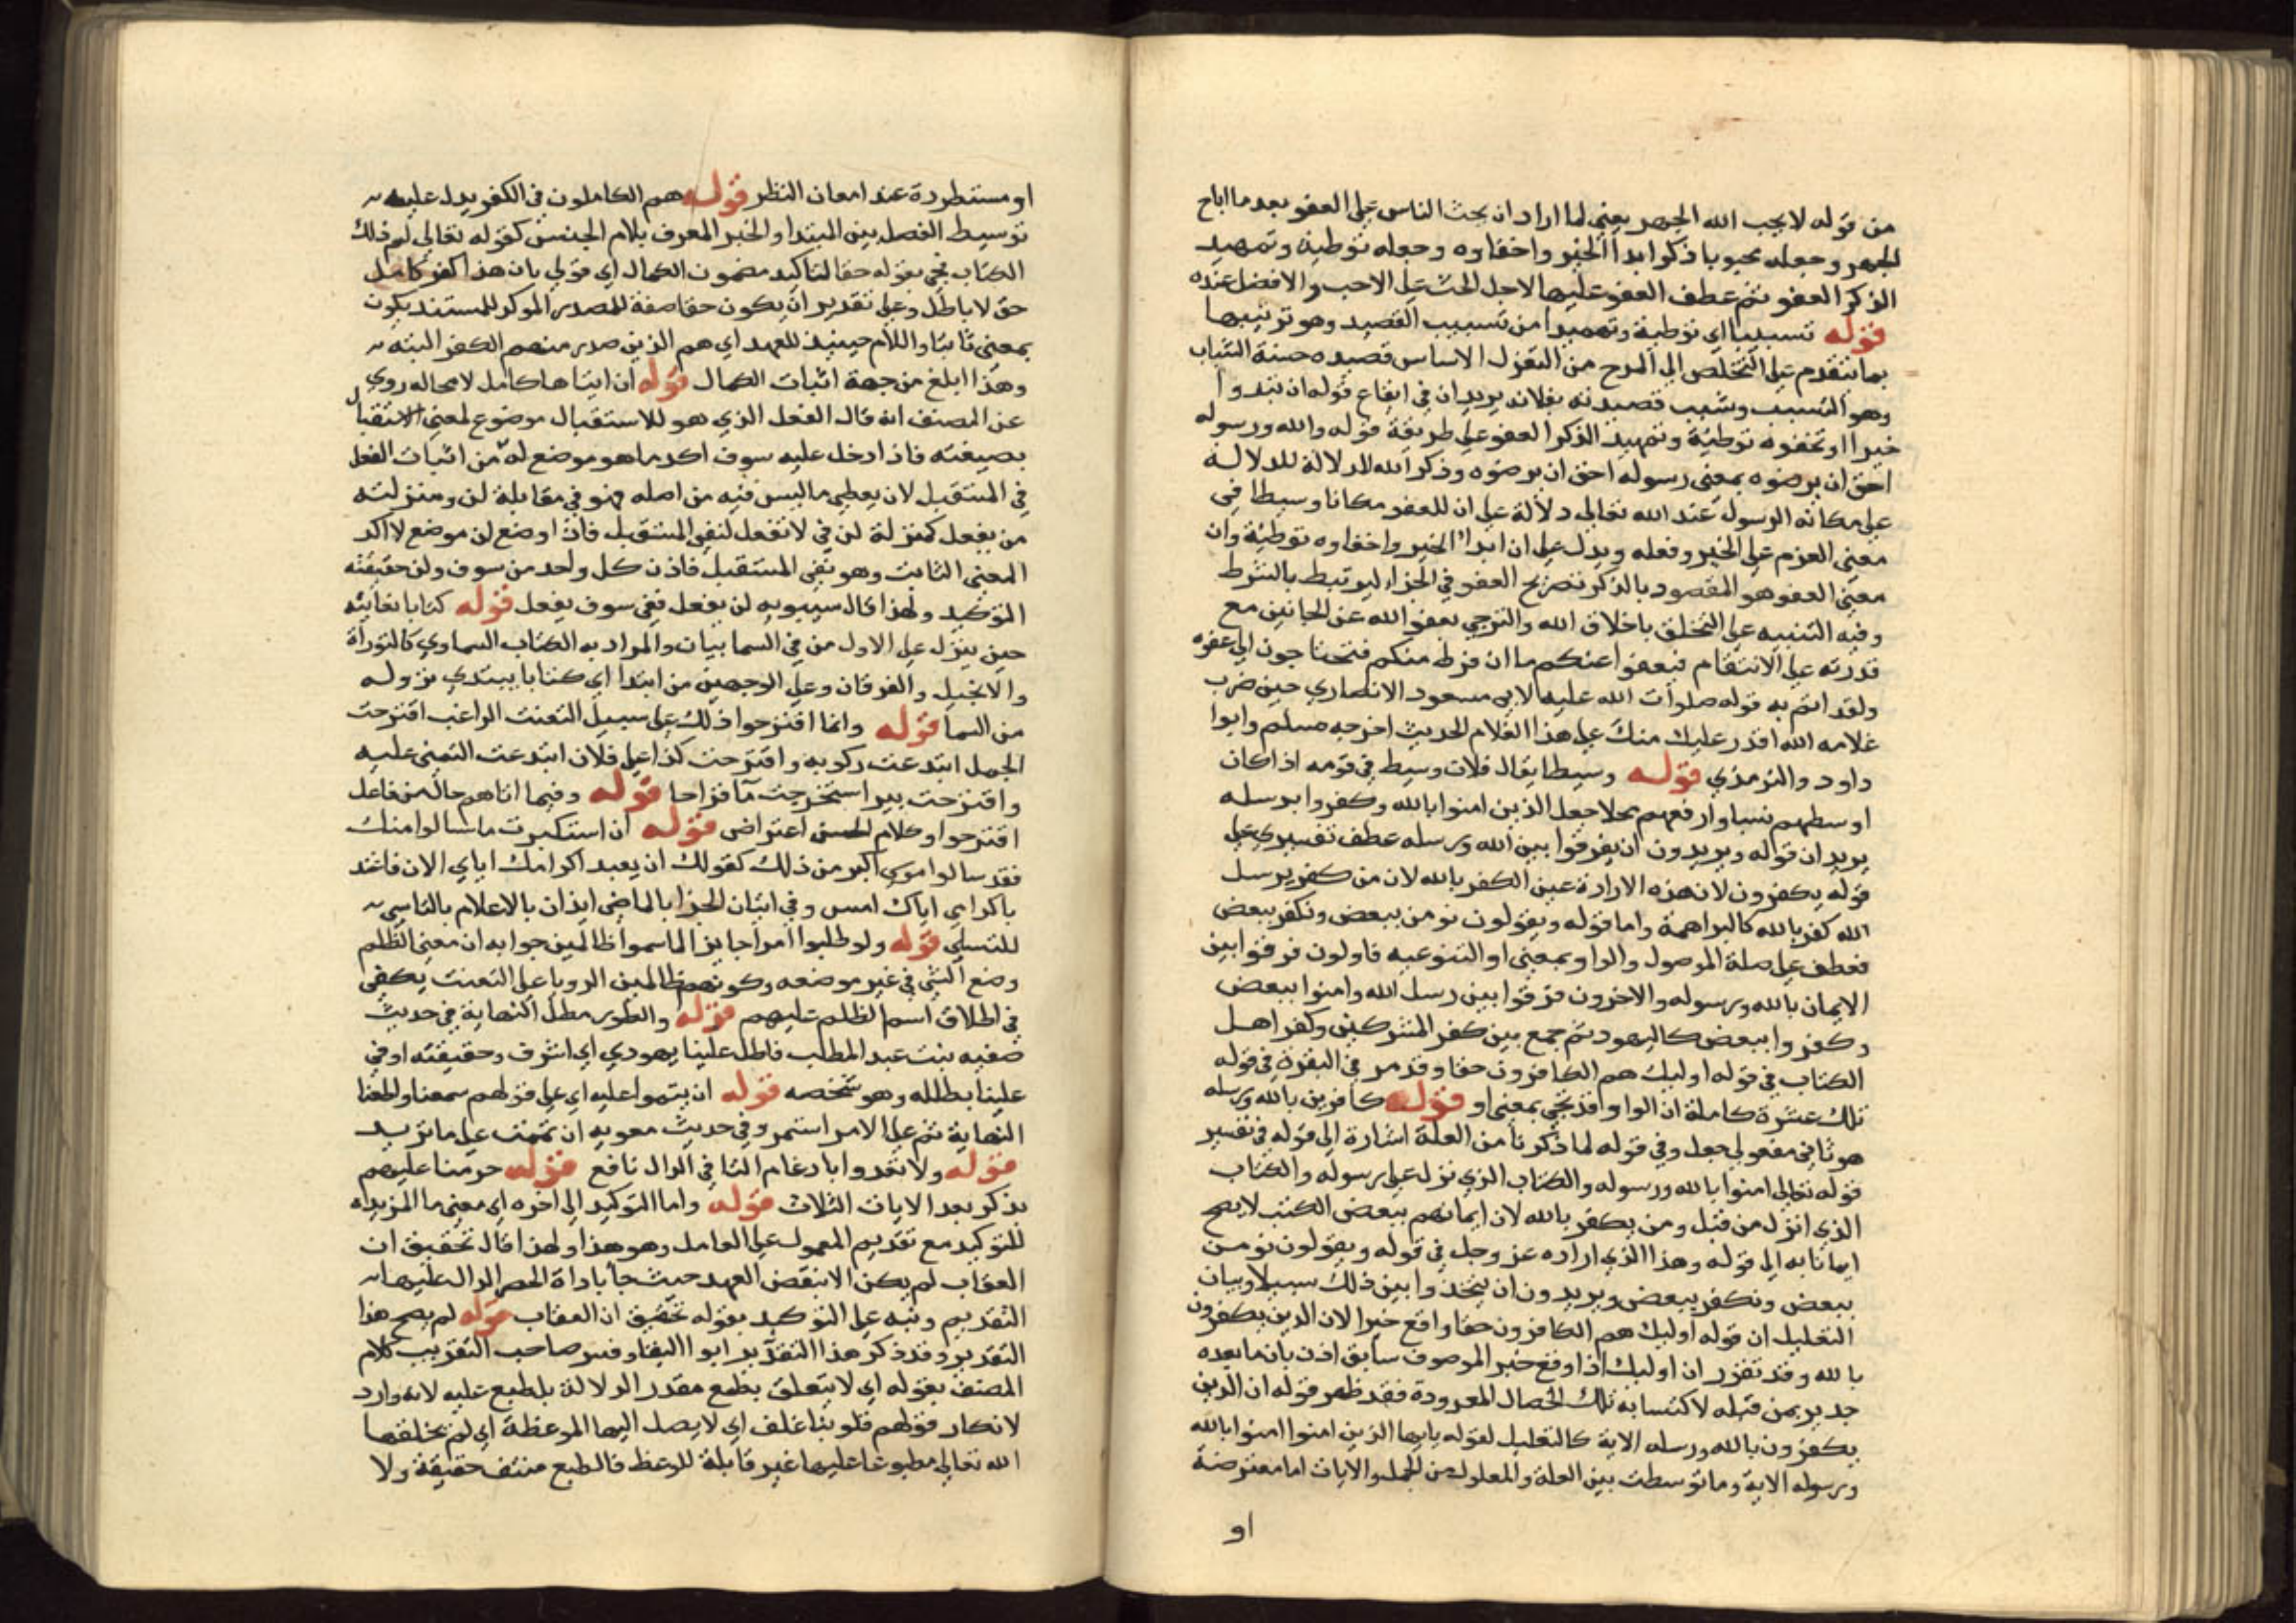 من قوله لا يحب الله الجهر يعني لما اراد ان يحث الناس على العفو بعد ما اباح
الجهر وجعله محبوبا ذكر ابدا الخير واخفاوه وجعله توطية وتمهيد
الذكر العفو ثم عطف العفو عليهما لاجل الحث على الاحب والافضل عنده
قوله تسبيبا اي توطية وتمهيدا من تسبيب القصيد وهو تزيينها
بما يتقدم على التخلص الى المدح من التغزل الاساس قصيده حسنة الشباب
وهو التسبيب وشبب قصيدته بفلانه يريد ان في ايقاع قوله ان تبدوا
خيرا او تخفوه توطية وتمهيد الذكر العفو على طريقة قوله والله ورسوله
احق ان يرضوه بمعنى رسوله احق ان يرضوه وذكر الله للدلالة للدلالة
على مكانه الرسول عند الله تعالى دلالة على ان للعفو مكانا وسيطا في
معنى العزم على الخير وفعله ويدل على ان ابدا الخير واخفاوه توطية وان
معنى العفو هو المقصود بالذكر تصريح العفو في الجزاء ليرتبط بالشرط
وفيه التنبيه على التخلق باخلاق الله والترجي بعفو الله عن الجانين مع
قدرته على الانتقام فيعفوا عنكم ما ان فرط منكم فتحتاجون الى عفوه
ولقد اتم به قوله صلوات الله عليه لابي مسعود الانصاري حين ضرب
غلامه الله اقدر عليك منك على هذا الغلام الحديث اخرجه مسلم وابوا
داود والترمذي قوله وسيطا يقال فلان وسيط في قومه اذا كان
اوسطهم نسبا وارفعهم محلا جعل الذين امنوا بالله وكفروا برسله
يريد ان قوله ويريدون ان يفرقوا بين الله ورسله عطف تفسيري على
قوله يكفرون لان هذه الارادة عين الكفر بالله لان من كفر برسل
الله كفر بالله كالبراهمة واما قوله ويقولون نومن ببعض ونكفر ببعض
فعطف على صلة الموصول والواو بمعنى او التنوعيه فاولون فرقوا بين
الايمان بالله ورسوله والاخرون فرقوا بين رسل الله وامنوا ببعض
وكفروا ببعض كاليهود ثم جمع بين كفر المشركين وكفر اهل
الكتاب في قوله اوليك هم الكافرون حقا وقد مر في البقرة في قوله
تلك عشرة كاملة ان الواو قد تجي بمعنى او قوله كافرين بالله ورسله
هو ثاني مفعولي جعل وفي قوله لما ذكرنا من العلة اشارة الى قوله في تفسير
قوله تعالى امنوا بالله ورسوله والكتاب الذي نزل على رسوله والكتاب
الذي انزل من قبل ومن يكفر بالله لان ايمانهم ببعض الكتب لا يصح
ايمانا به الى قوله وهذا الذي اراده عز وجل في قوله ويقولون نومن
ببعض ونكفر ببعض ويريدون ان يتخذوا بين ذلك سبيلا وبيان
التعليل ان قوله اوليك هم الكافرون حقا واقع خبرا لان الذين يكفرون
بالله وقد تقرر ان اوليك اذا وقع خبر الموصوف سابق اذن بان ما بعده
جدير بمن قبله لاكتسابه تلك الخصال المعدودة فقد ظهر قوله ان الذين
يكفرون بالله ورسله الاية كالتعليل لقوله يايها الذين امنوا امنوا بالله
ورسوله الاية وما توسطت بين العلة والمعلول من الجمل والايات اما معترضة
او
او مستطردة عند امعان النظر قوله هم الكاملون في الكفر يدل عليه
توسيط الفصل بين المبتدا والخبر المعرف بلام الجنس كقوله تعالى الم ذلك
الكتاب فجي بقوله حقا لتاكيد مضمون الكمال اي قولي بان هذا كفر كامل
حق لا باطل وعلى تقدير ان يكون حقا صفة للمصدر الموكد للمستند يكون
بمعنى ثابتا واللام حينيذ للعهد اي هم الذين صدر منهم الكفر البته
وهذا ابلغ من جهة اثبات الكمال قوله ان ايتاها كامل لا محاله روي
عن المصنف انه قال الفعل الذي هو للاستقبال موضوع لمعنى الاستقبال
بصيغته فاذا دخل عليه سوف اكد ما هو موضع له من اثبات الفعل
في المستقبل لان يعطى ما ليس فيه من اصله فهو في مقابلة لن ومنزلته
من يفعل كمنزلة لن في لا تفعل لنفي المستقبل فاذا وضع لن موضع لا اكد
المعنى الثابت وهو نفي المستقبل فاذن كل واحد من سوف ولن حقيقته
التوكيد ولهذا قال سيبويه لن يفعل نفي سوف يفعل قوله كتابا نعاينه
حين ينزل على الاول من في السما بيان والمراد به الكتاب السماوي كالتوراة
والانجيل والفرقان وعلى الوجهين من ابتدا اي كتابا يبتدي نزوله
من السما قوله وانما اقترحوا ذلك على سبيل التعنت الراغب اقترحت
الجمل ابتدعت ركوبه واقترحت كذا على فلان ابتدعت التمني عليه
واقترحت بيرا استخرجت ما قراحا قوله وفيما اتاهم حال من فاعل
اقترحوا وكلام الحسن اعتراض قوله ان استكبرت ما سالوا منك
فقد سالوا موسى اكبر من ذلك كقولك ان يعبد اكرامك اياي الان فاعتد
باكرامي اياك امس وفي اتيان الجزا بالماضي ايذان بالاعلام بالتاسي
للتسلي قوله ولو طلبوا امرا جايزا لما سموا ظالمين جوابه ان معنى الظلم
وضع الشي في غير موضعه وكونهم ظالمين الرويا على التعنت يكفي
في اطلاق اسم الظلم عليهم قوله والطور مطل النهاية في حديث
صفيه بنت عبد المطلب فاطل علينا يهودي اي اشرف وحقيقته اوفي
علينا بطلله وهو شخصه قوله ان يتموا عليه اي على قولهم سمعنا واطعنا
النهاية تم على الامر استمر وفي حديث معويه ان تممت على ما تريد
قوله ولا تعدوا بادغام التا في الدال نافع قوله حرمنا عليهم
يذكر بعد الايات الثلاث قوله واما التوكيد الى اخره اي معنى ما المزيده
للتوكيد مع تقديم المعمول على العامل وهو هذا ولهذا قال تحقيق ان
العقاب لم يكن الا بنقض العهد حيث جا باداة الحصر الدال عليها
التقديم ونبه على التوكيد بقوله تحقيق ان العقاب قوله لم يصح هذا
التقدير وقد ذكر هذا التقدير ابوا البقا وفسر صاحب التقريب كلام
المصنف بقوله اي لا يتعلق بطبع مقدر الدلالة بل طبع عليه لانه وارد
لانكار قولهم قلوبنا غلف اي لا يصل اليها الموعظة اي لم يخلقها
الله تعالى مطبوعا عليها غير قابلة للوعظ فالطبع منتف حقيقة ولا